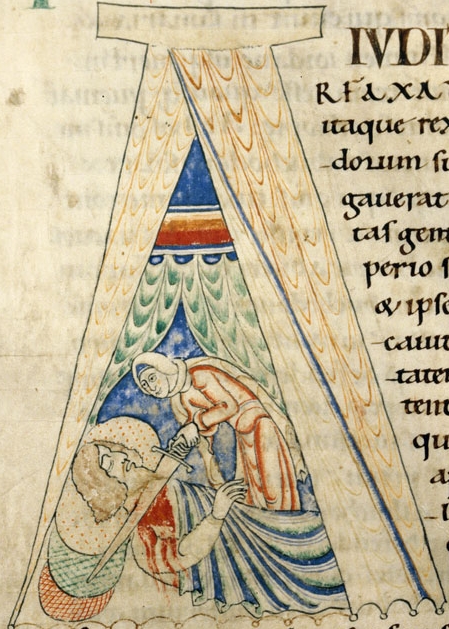 IVDI
RFAXA
itaque rex
dorum su
gauerat
tas gen
perio s
& ipse
-cauit
-tate
qu